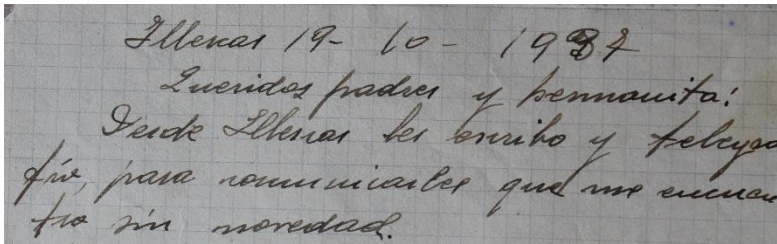 Illescas 19- 10- 1937
Queridos padres y hermanita:
Desde Illescas les escribo y telegra
fío, para comunicarles que me encuen
tro sin novedad.